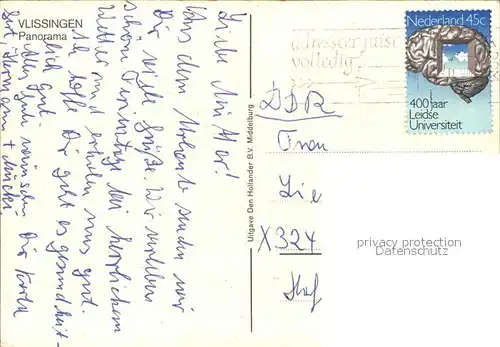 VLISSINGEN
Panorama
Liebe Mutter!
Aus dem Urlaube senden wir
Dir viele Grüße. Wir verleben
schöne Ferientage bei herrlichem
Wetter und erholen uns gut.
hoffe Dir geht es gesundheit-
lich gut.
Alles Gute wünschen Dir
Uitgave Den Hollander B.V. Middelburg
adresseer juist
volledig
Nederland 45c
400 jaar
Leidse
Universiteit
DDR
Frau
X 324
privacy protection
Datenschutz